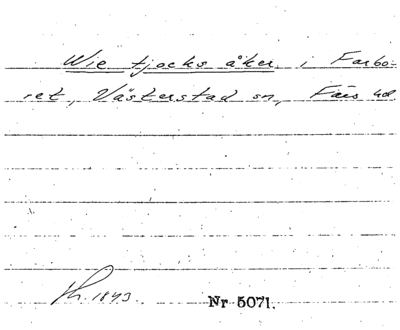 Wie tjocks åker i Farbo-
ret, Västerstad sn, Färs hd
1843. Nr 5071.